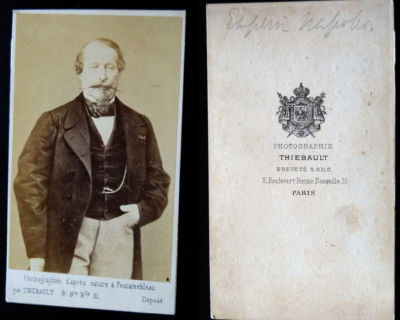 Photographié d'après nature à Fontainebleau
par THIEBAULT Bd Bne Nlle 31. Déposé
PHOTOGRAPHIE
THIEBAULT
BREVETÉ S.G.D.G
31, Boulevart Bonne Nouvelle, 31
PARIS